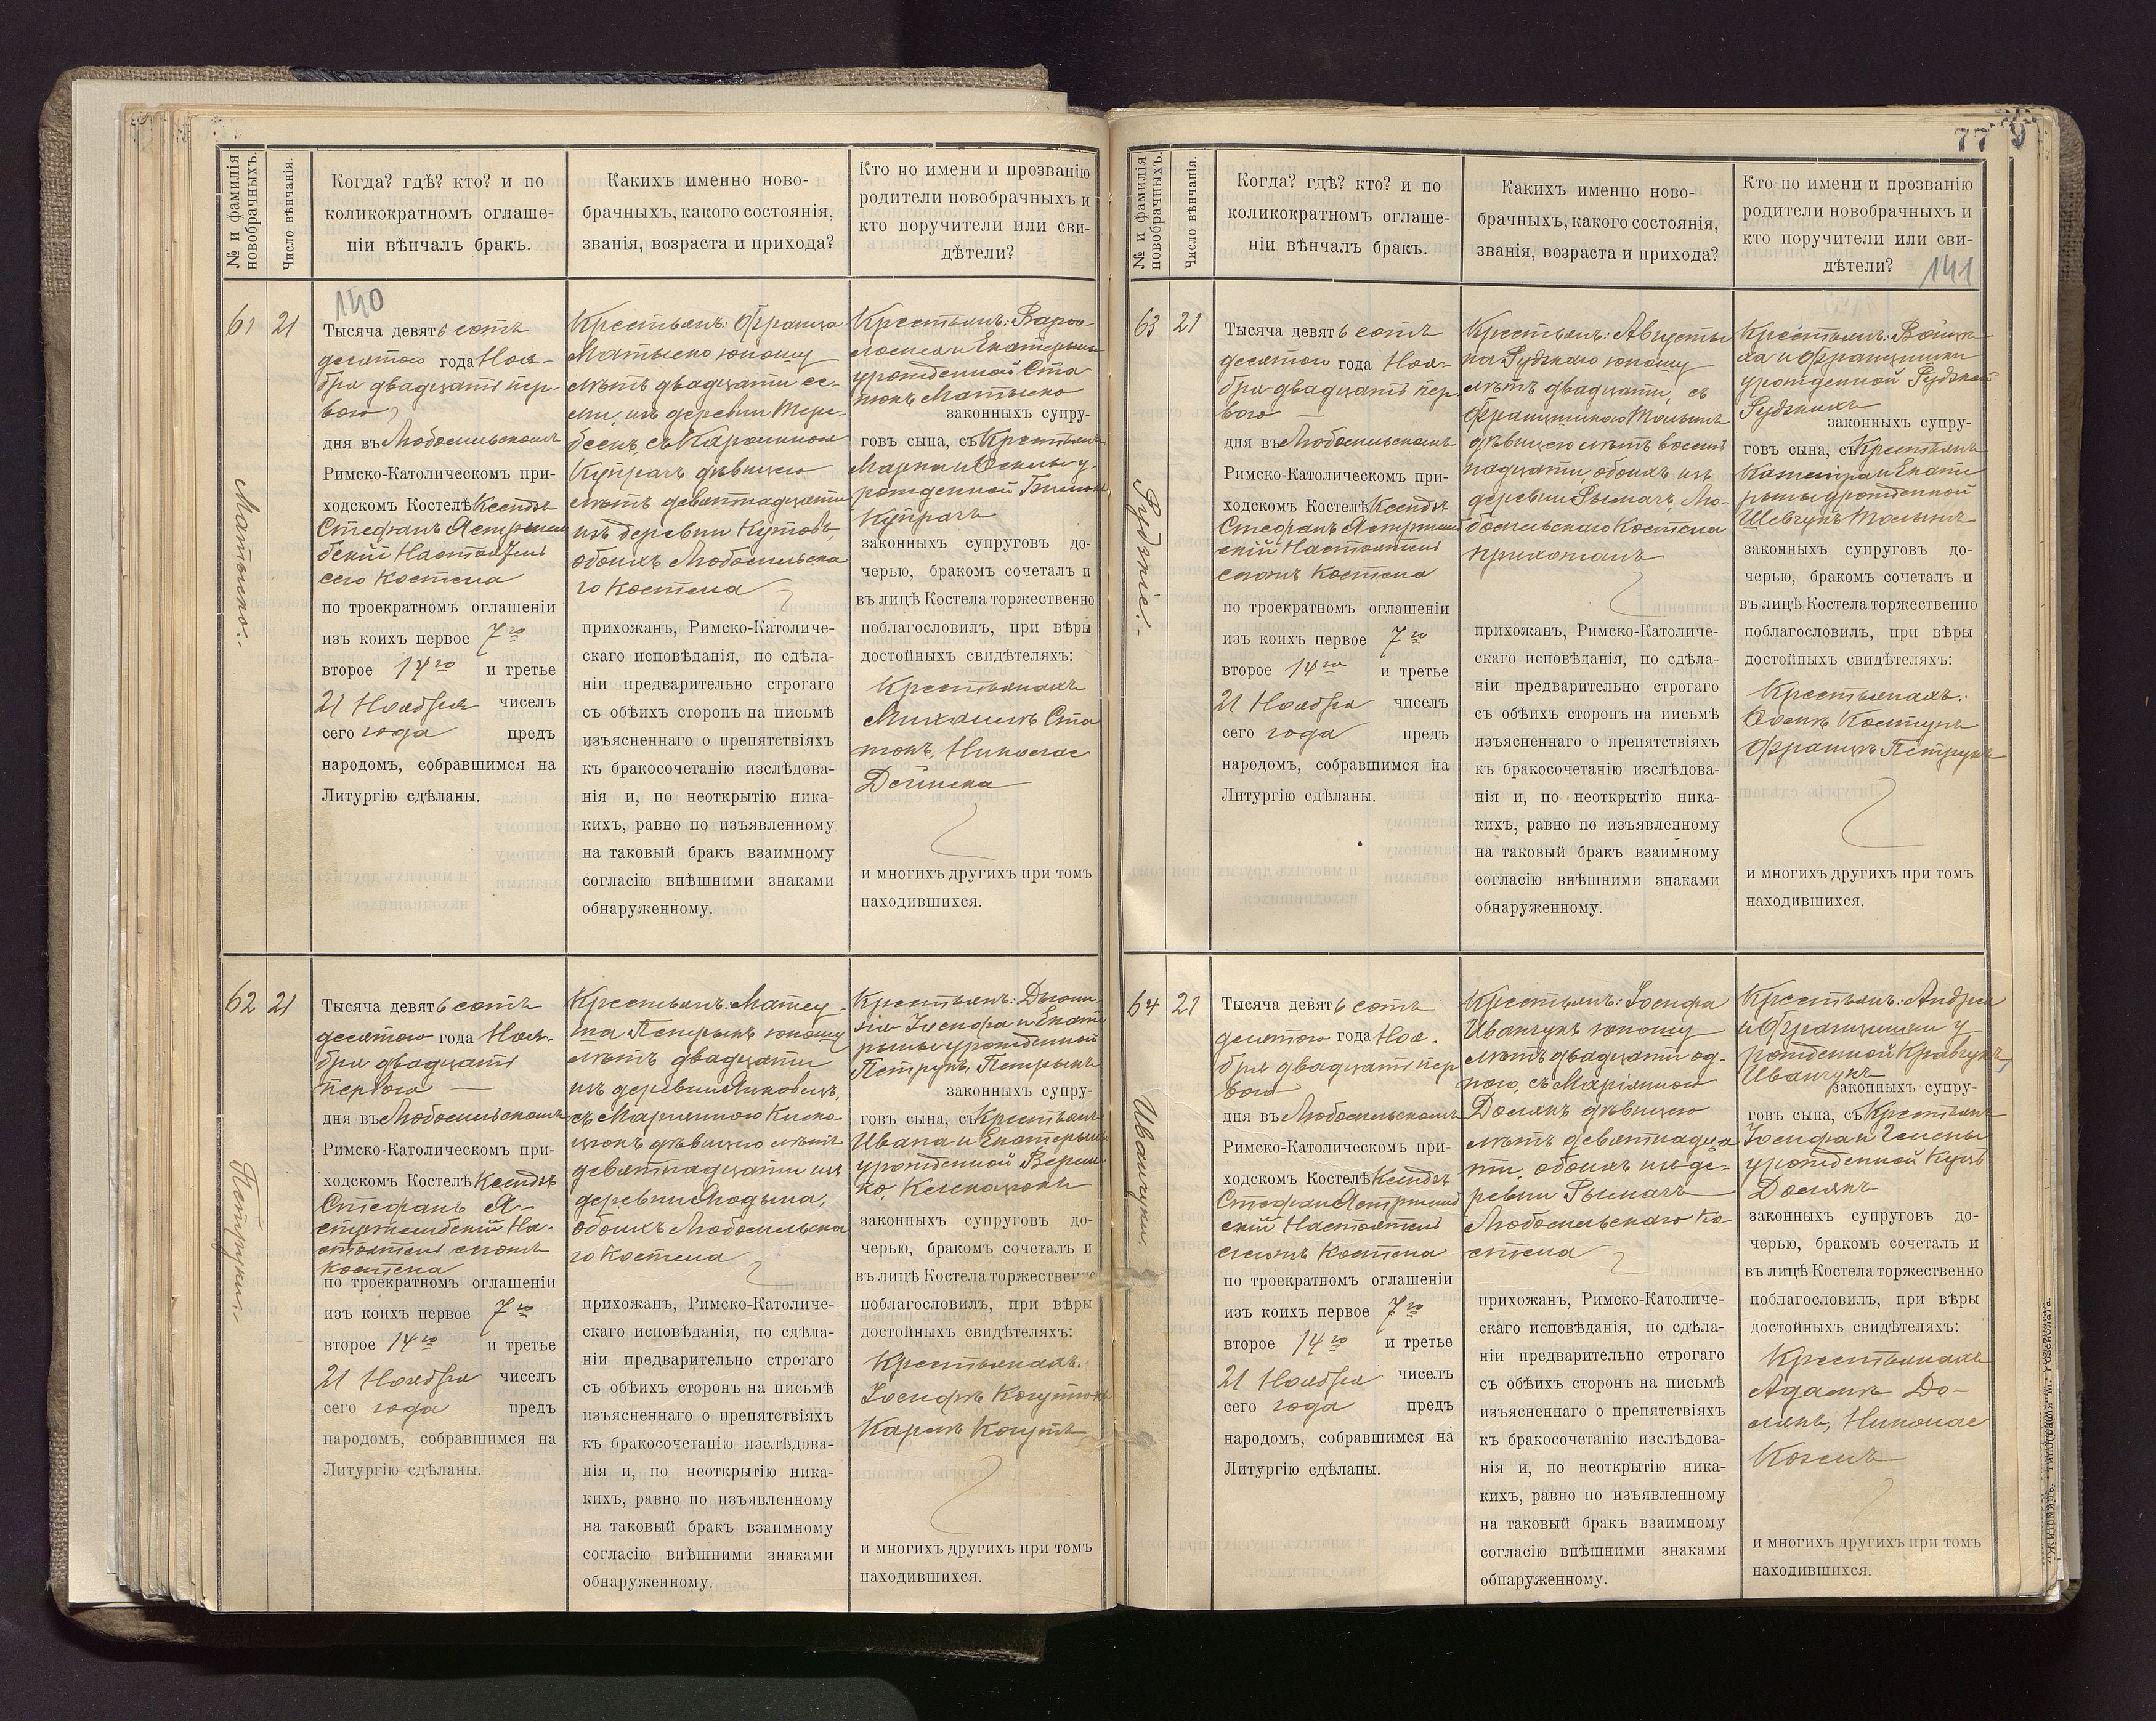 77 9
№ и фамилія новобрачныхъ.
Число вѣнчанія.
Когда? гдѣ? кто? и по
коликократномъ оглаше-
ніи вѣнчалъ бракъ.
Какихъ именно ново-
брачныхъ, какого состоянія,
званія, возраста и прихода?
Кто по имени и прозванію
родители новобрачныхъ и
кто поручители или сви-
дѣтели?
61
21
Матыско.
140
Тысяча девятьсотъ
десятого года Ноя-
бря двадцать пер-
вого
дня въ Любомльскомъ
Римско-Католическомъ при-
ходскомъ Костелѣ Ксендзъ
Стефанъ Ястржем
бскій Настоятель
сего Костела
по троекратномъ оглашеніи
изъ коихъ первое 7го
второе 14го и третье
21 Ноября чиселъ
сего года предъ
народомъ, собравшимся на
Литургію сдѣланы.
Крестьянъ: Франца
Матыско юношу
лѣтъ двадцати се-
ми, изъ деревни Тере-
беекъ, съ Каролиною
Купрачъ дѣвицею
лѣтъ девятнадцати
изъ деревни Кутовъ,
обоихъ Любомльска
го Костела
прихожанъ, Римско-Католиче-
скаго исповѣданія, по сдѣла-
ніи предварительно строгаго
съ обѣихъ сторонъ на письмѣ
изъясненнаго о препятствіяхъ
къ бракосочетанію изслѣдова-
нія и, по неоткрытію ника-
кихъ, равно по изъявленному
на таковый бракъ взаимному
согласію внѣшними знаками
обнаруженному.
Крестьянъ: Варѳо-
ломея и Екатерины
урожденной Ста
тюкъ Матыско
законныхъ супру-
говъ сына, съ Крестьянъ
Марка и у-
рожденной
Купрачъ
законныхъ супруговъ до-
черью, бракомъ сочеталъ и
въ лицѣ Костела торжественно
поблагословилъ, при вѣры
достойныхъ свидѣтеляхъ:
Крестьянахъ
Михаилъ Ста
тюкъ, Николае
Дейнека
и многихъ другихъ при томъ
находившихся.
62
21
Петруки.
Тысяча девятьсотъ
десятого года Ноя-
бря двадцать
первого
дня въ Любомльскомъ
Римско-Католическомъ при-
ходскомъ Костелѣ Ксендзъ
Стефанъ Я-
стржембскій На-
стоятель сего
костела
по троекратномъ оглашеніи
изъ коихъ первое 7го
второе 14го и третье
21 Ноября чиселъ
сего года предъ
народомъ, собравшимся на
Литургію сдѣланы.
Крестьянъ: Матеу-
ша юношу
лѣтъ двадцати
изъ деревни
съ Марьянною
дѣвицею лѣтъ
девятнадцати изъ
деревни
обоихъ Любомльска
го Костела
прихожанъ, Римско-Католиче-
скаго исповѣданія, по сдѣла-
ніи предварительно строгаго
съ обѣихъ сторонъ на письмѣ
изъясненнаго о препятствіяхъ
къ бракосочетанію изслѣдова-
нія и, по неоткрытію ника-
кихъ, равно по изъявленному
на таковый бракъ взаимному
согласію внѣшними знаками
обнаруженному.
Крестьянъ:
Іосифа и Екате
рины урожденной
Петрукъ,
законныхъ супру-
говъ сына, съ Крестьянъ
Ивана и Екатерины
урожденной
законныхъ супруговъ до-
черью, бракомъ сочеталъ и
въ лицѣ Костела торжественно
поблагословилъ, при вѣры
достойныхъ свидѣтеляхъ:
Крестьянахъ:
Іосифъ
Карлъ
и многихъ другихъ при томъ
находившихся.
№ и фамилія новобрачныхъ.
Число вѣнчанія.
Когда? гдѣ? кто? и по
коликократномъ оглаше-
ніи вѣнчалъ бракъ.
Какихъ именно ново-
брачныхъ, какого состоянія,
званія, возраста и прихода?
Кто по имени и прозванію
родители новобрачныхъ и
кто поручители или сви-
дѣтели?
141
63
21
Рудзкіе.
Тысяча девятьсотъ
десятого года Ноя-
бря двадцать пер
вого
дня въ Любомльскомъ
Римско-Католическомъ при-
ходскомъ Костелѣ Ксендзъ
Стефанъ Ястржемб
скій Настоятель
Костела
по троекратномъ оглашеніи
изъ коихъ первое 7го
второе 14го и третье
21 Ноября чиселъ
сего года предъ
народомъ, собравшимся на
Литургію сдѣланы.
Крестьянъ: Августы
на Рудзкаго юношу
лѣтъ двадцати, съ
Францишкою
дѣвицею лѣтъ восем
надцати, обоихъ изъ
деревни Рымачъ, Лю-
бомльскаго Костела
прихожанъ
прихожанъ, Римско-Католиче-
скаго исповѣданія, по сдѣла-
ніи предварительно строгаго
съ обѣихъ сторонъ на письмѣ
изъясненнаго о препятствіяхъ
къ бракосочетанію изслѣдова-
нія и, по неоткрытію ника-
кихъ, равно по изъявленному
на таковый бракъ взаимному
согласію внѣшними знаками
обнаруженному.
Крестьянъ: Войцѣ
ха и Францишки
урожденной Рудзкой
Рудзкихъ
законныхъ супру-
говъ сына, съ Крестьянъ
Казимира и Екате
рины урожденной
Шевчукъ
законныхъ супруговъ до-
черью, бракомъ сочеталъ и
въ лицѣ Костела торжественно
поблагословилъ, при вѣры
достойныхъ свидѣтеляхъ:
Крестьянахъ:
Францъ Петрукъ
и многихъ другихъ при томъ
находившихся.
64
21
Иванчуки.
Тысяча девятьсотъ
десятого года Ноя-
бря двадцать пер
вого
дня въ Любомльскомъ
Римско-Католическомъ при-
ходскомъ Костелѣ Ксендзъ
Стефанъ Ястржемб
скій Настоятель
Костела
по троекратномъ оглашеніи
изъ коихъ первое 7го
второе 14го и третье
21 Ноября чиселъ
сего года предъ
народомъ, собравшимся на
Литургію сдѣланы.
Крестьянъ: Іосифа
Иванчукъ юношу
лѣтъ двадцати од-
ного, съ Маріянною
дѣвицею
лѣтъ девятнадца
ти, обоихъ изъ де-
ревни Рымачъ
Любомльскаго Ко
стела
прихожанъ, Римско-Католиче-
скаго исповѣданія, по сдѣла-
ніи предварительно строгаго
съ обѣихъ сторонъ на письмѣ
изъясненнаго о препятствіяхъ
къ бракосочетанію изслѣдова-
нія и, по неоткрытію ника-
кихъ, равно по изъявленному
на таковый бракъ взаимному
согласію внѣшними знаками
обнаруженному.
Крестьянъ: Андрея
и Францишки у-
рожденной Кравчукъ,
Иванчукъ
законныхъ супру-
говъ сына, съ Крестьянъ
Іосифа и Гелены
урожденной
законныхъ супруговъ до-
черью, бракомъ сочеталъ и
въ лицѣ Костела торжественно
поблагословилъ, при вѣры
достойныхъ свидѣтеляхъ:
Крестьянахъ
Адамъ
Николае
Козелъ
и многихъ другихъ при томъ
находившихся.